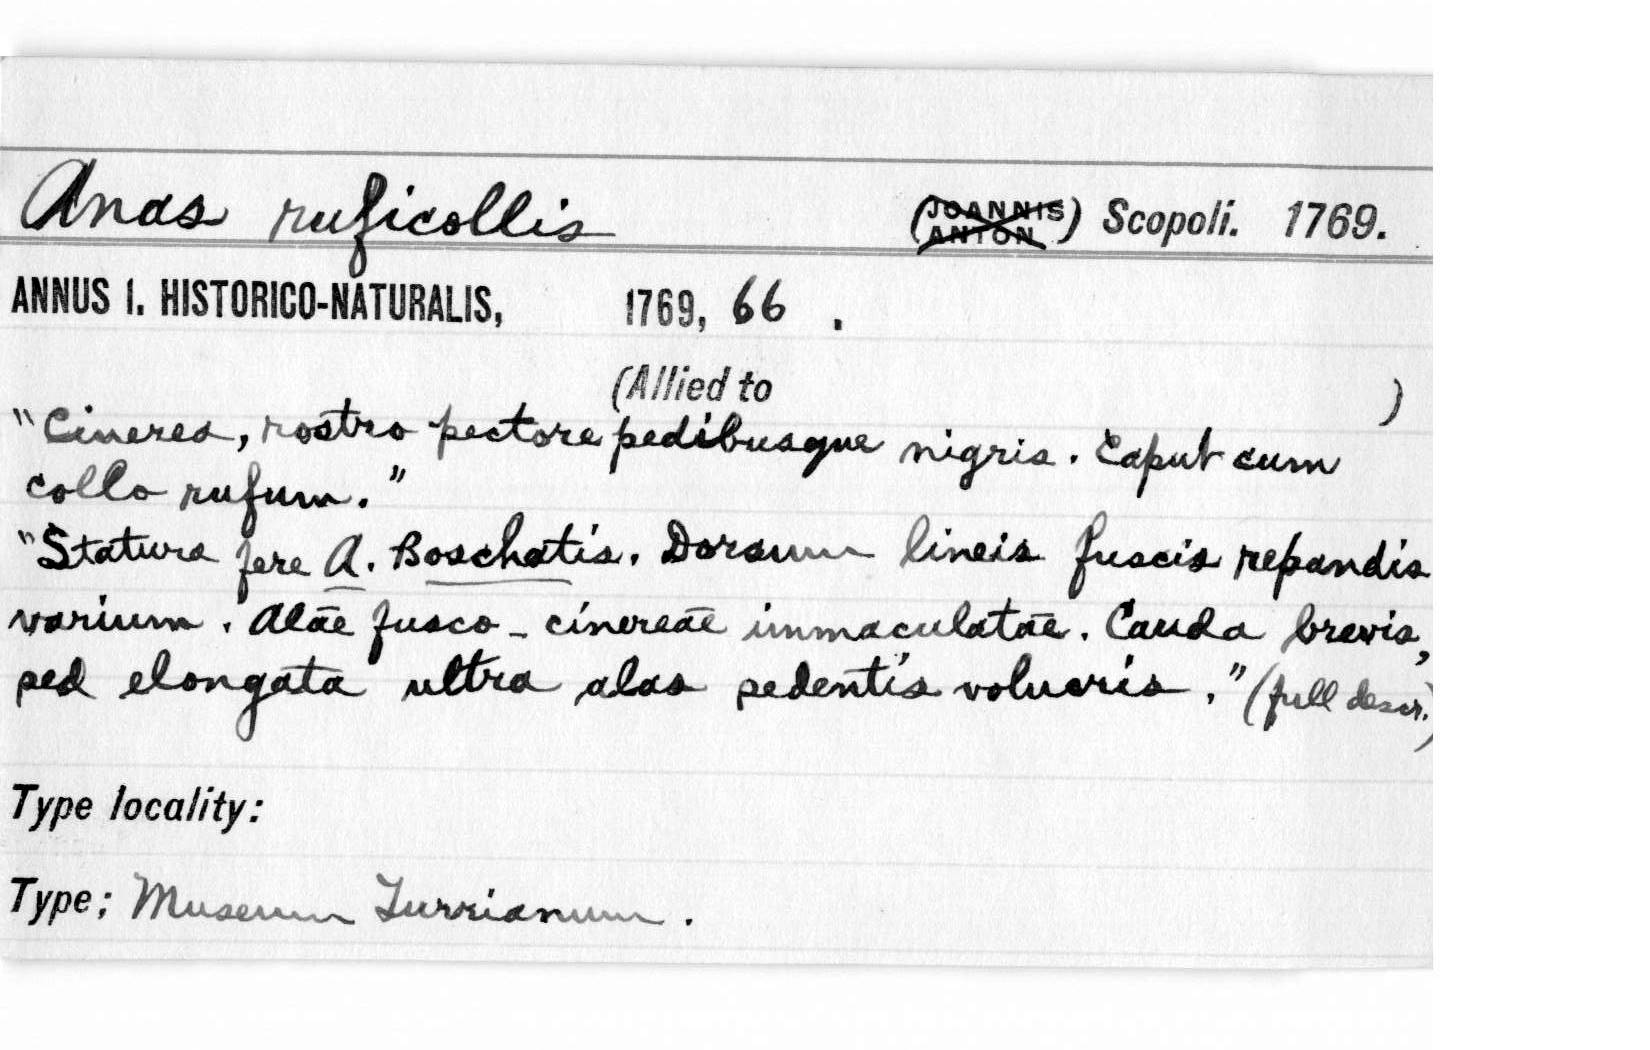 Anas ruficollis (JOANNIS ANTON) Scopoli. 1769.
ANNUS I. HISTORICO-NATURALIS, 1769, 66 .
(Allied to )
"Cinerea, rostro pectore pedibusque nigris. Caput cum
collo rufum."
"Statura fere A. Boschatis. Dorsum lineis fuscis repandis
varium. Alae fusco-cinereae immaculatae. Cauda brevis,
sed elongata ultra alas sedentis volucris." (full descr.)
Type locality:
Type; Museum Turrianum.